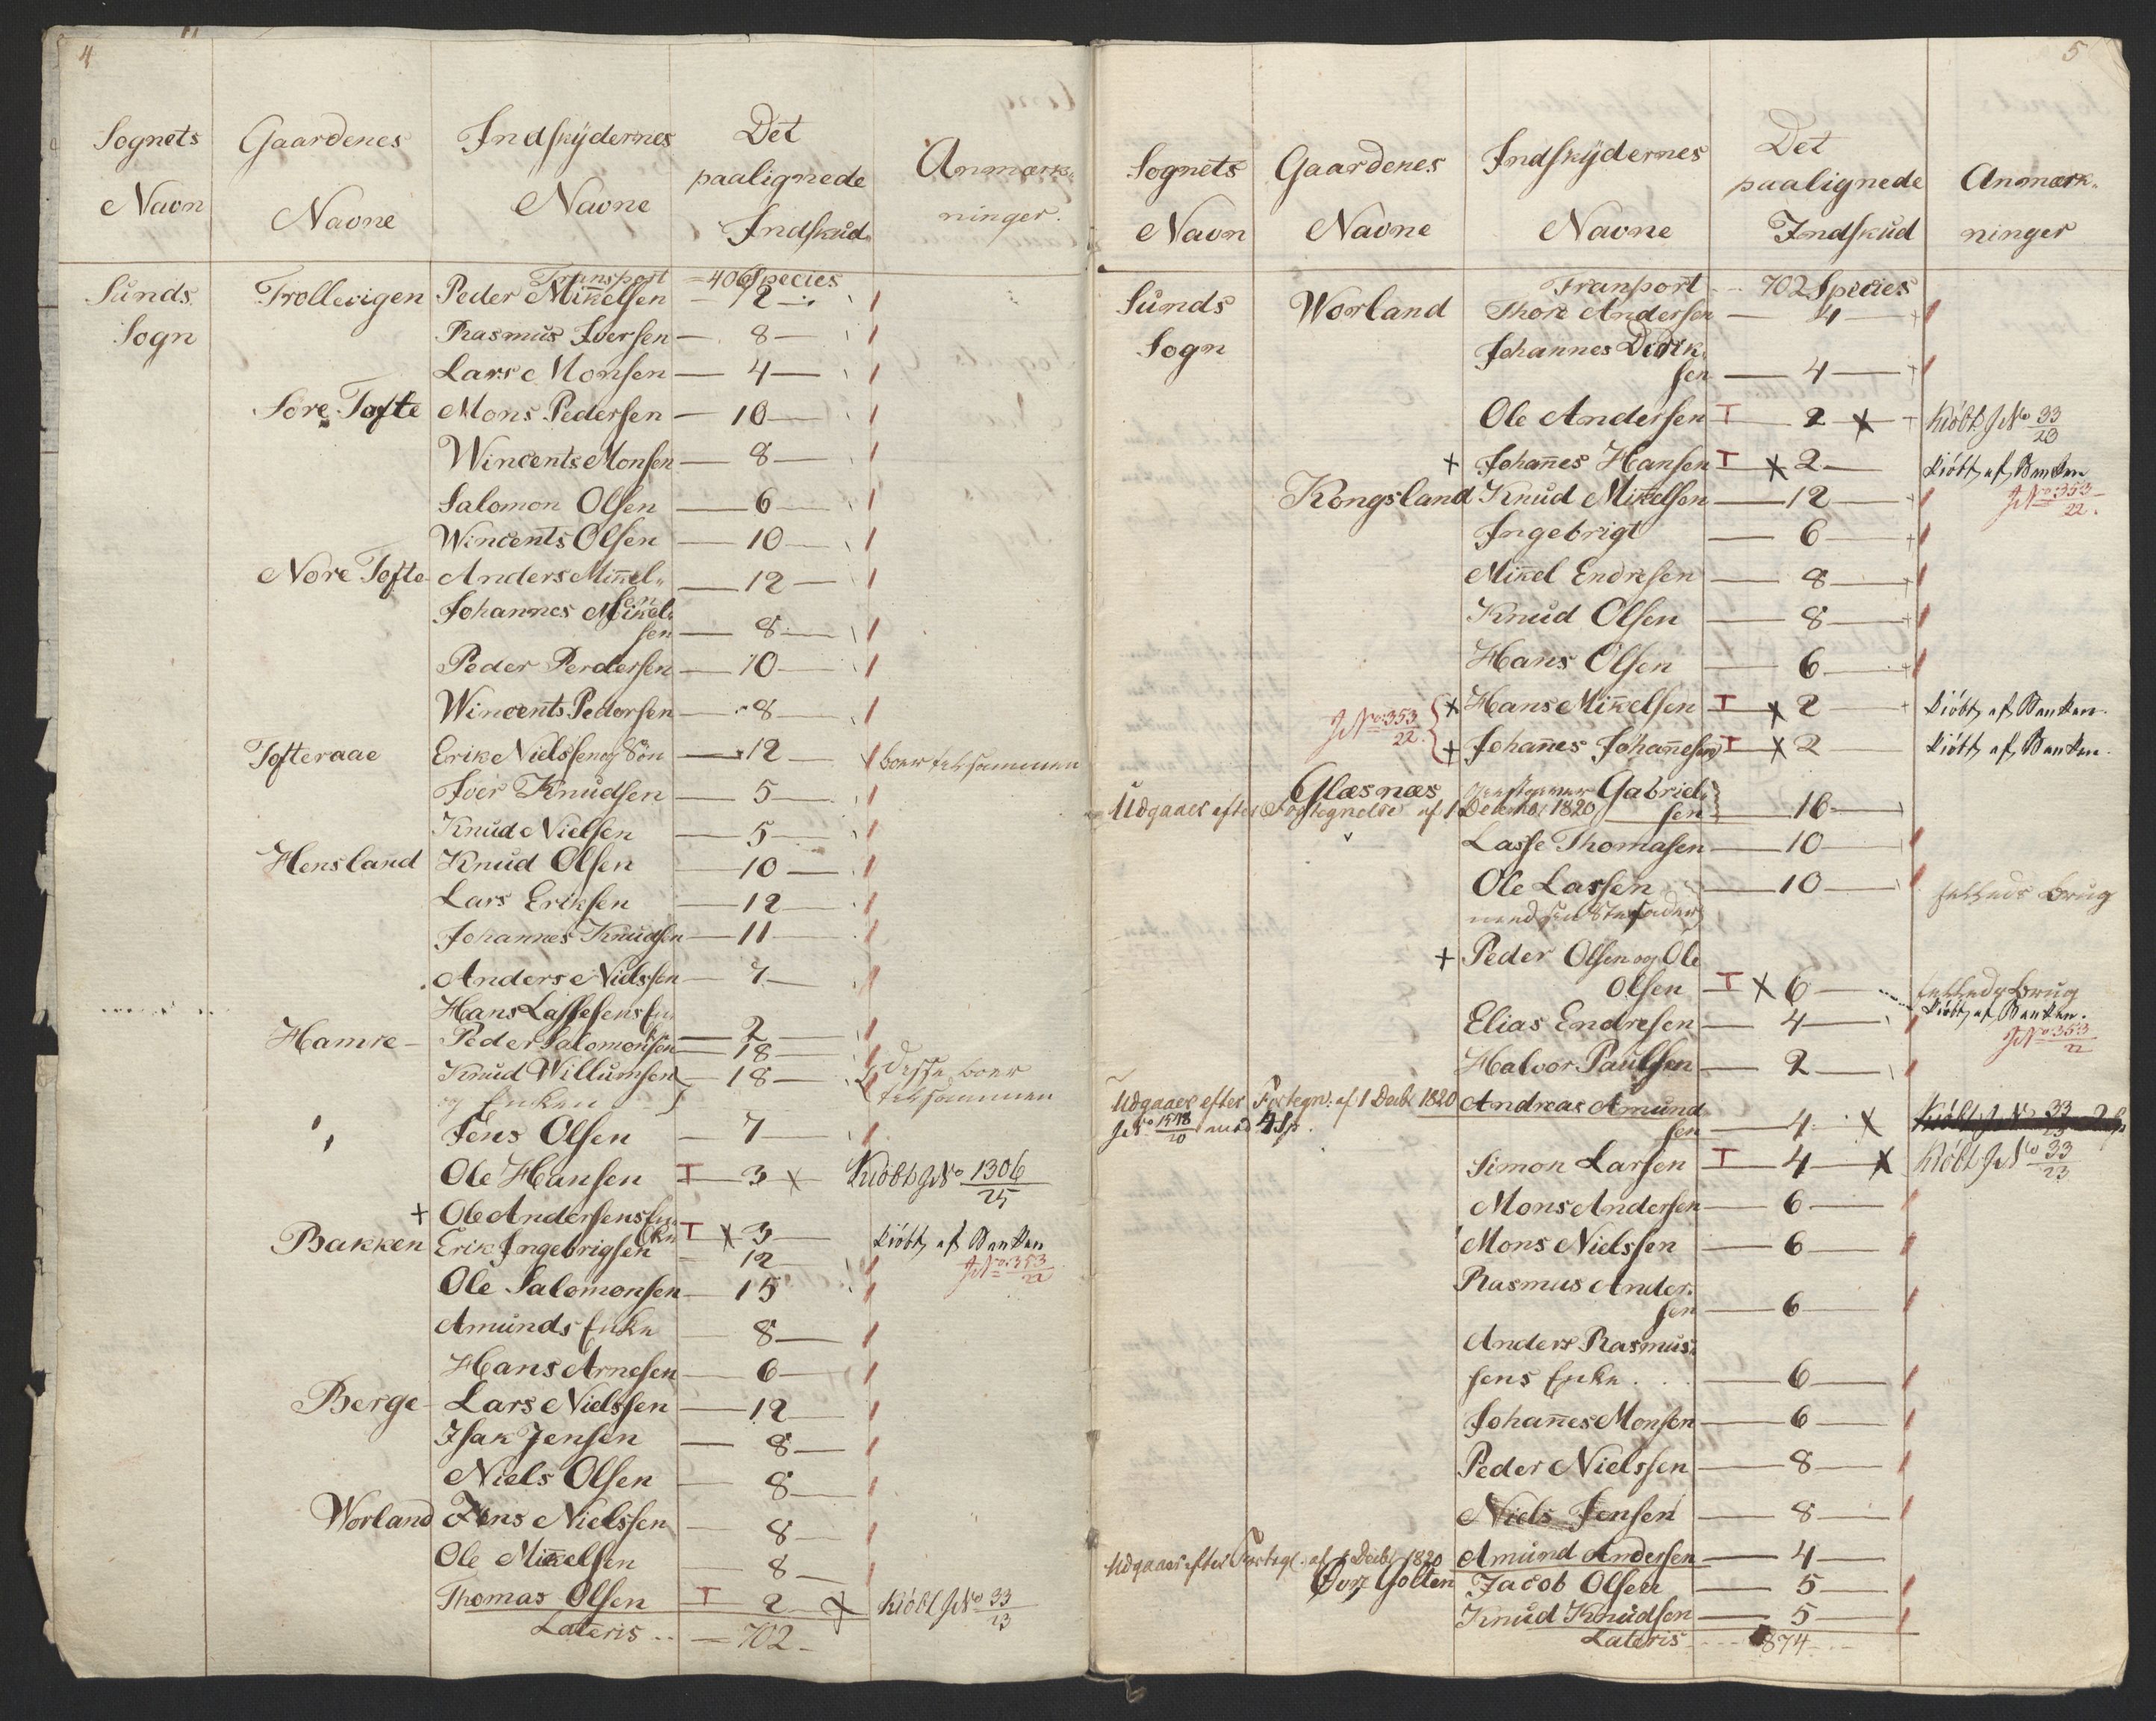 4
Sognets Navn
Gaardenes Navne
Indskydernes Navne
Det paalignede Indskud
Anmærkninger.
Transport =406 Species
Sunds Trollevigen Peder Mikkelsen — 12 —
Sogn Rasmus Iversen — 8 —
Lars Monsen — 4 —
Søre Tofte Mons Pedersen — 10 —
Wincents Monsen — 8 —
Salomon Olsen — 6 —
Wincents Olsen — 10 —
Nore Tofte Anders Mikkelsen — 12 —
Johannes Mikkelsen — 8 —
Peder Perdersen — 10 —
Wincents Pedersen — 8 —
Tofteraae Erik Nielssen og Søn — 12 — boer tilsammen
Iver Knudsen — 5 —
Knud Nielsen — 5 —
Hensland Knud Olsen — 10 —
Lars Eriksen — 12 —
Johannes Knudsen — 11 —
Anders Nielssen — 7 —
Hans Lassesens Enke — 2 —
Hamre Peder Salomonsen — 18 —
Knud Willumsen og Enken — 18 — disse boer tilsammen
Jens Olsen — 7 —
Ole Hansen T — 3 x Kiöbt JNo 1306/25
+ Ole Andersens Enke T x 3 — kiöbt af Banken
JNo 353/22
Bakken Erik Ingebrigsen — 12 —
Ole Salomonsen — 15
Amunds Enke — 8 —
Hans Arnesen — 6 —
Berge Lars Nielssen — 12 —
Isak Jensen — 8 —
Niels Olsen — 8 —
Worland Jens Nielssen — 8 —
Ole Mikkelsen — 8 —
Thomas Olsen T 2 x Kiöbt JNo 33/23
Lateris .. = 702 —
5
Sognets Navn
Gaardenes Navne
Indskydernes Navne
Det paalignede Indskud
Anmærkninger
Tranport .. 702 Species
Sunds Worland Thore Andersen — 4 —
Sogn Johannes Didriksen — 4 —
Ole Andersen T — 2 x Kiöbt JNo 33/23
+ Johannes Hansen T x 2 — kiöbt af Banken
JNo 353/22.
Kongsland Knud Mikkelsen — 12 —
Ingebrigt — 6 —
Mikkel Endresen — 8 —
Knud Olsen — 8 —
Hans Olsen — 6 —
JNo 353/22. + Hans Mikkelsen T x 2 — kiöbt af Banken.
+ Johannes Johannesen T x 2 — kiöbt af Banken.
Glæsnæs Gabrielsen — 16 —
Udgaaer efter Fortegnelse af 1 December 1820
Lasse Thomasen — 10 —
Ole Lassen — 10 — fælleds Brug
med sin Stefader
+ Peder Olsen og Ole Olsen T x 6 — fælleds Brug
kiöbt af Banken.
JNo 353/22
Elias Endresen — 4 —
Halvor Paulsen — 2 —
Udgaaer efter Fortegn: af 1 Decbr 1820 Andreas Amundsen — 4 x Kiöbt JNo 33/23 2 Sp
JNo 1578/20 med 4 Sp.
Simon Larsen T — 4 — x Kiöbt JNo 33/23
Mons Andersen — 6 —
Mons Nielssen — 6 —
Rasmus Andersen — 6 —
Anders Rasmussens Enke . . — 6 —
Johannes Monsen — 6 —
Peder Nielssen — 8 —
Niels Jensen — 8 —
Udgaaer efter Forteg: af 1 Decbr 1820 Amund Andersen — 4 —
Øvre Golten Jacob Olsen — 5 —
Knud Knudsen — 5 —
Lateris .... 874 ...